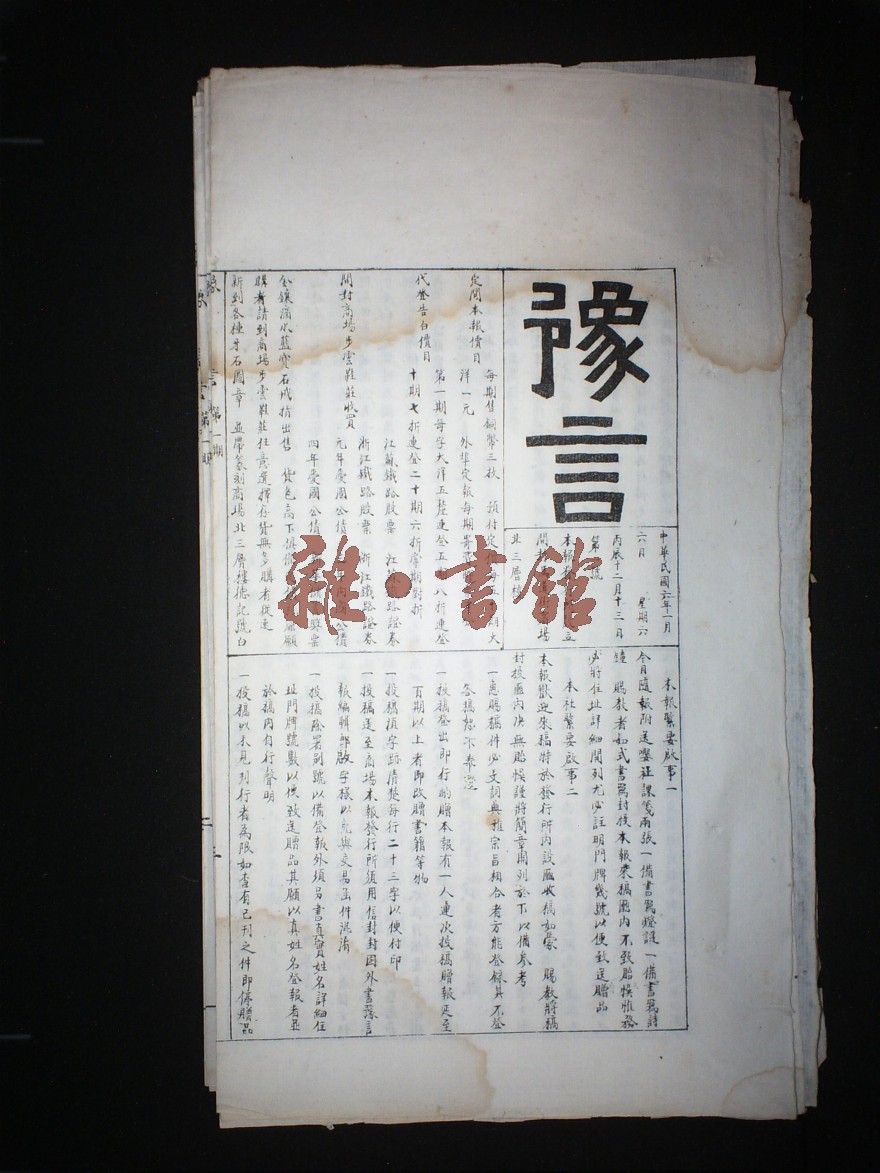 豫言
中華民國六年一月
六日 星期六
丙辰十二月十三日
第
本報
間
北三層樓
定閱本報價目
每期售銅幣三枚 預付定
洋一元 外埠定報每期
代登告白價目
第一期每字大洋五釐連登五期八折連登
十期七折連登二十期六折摩期對折
開對商場步雲鞋莊收買
江蘇鐵路股票 江蘇鐵路證券
浙江鐵路股票 浙江鐵路證券
元年愛國公債
四年愛國公債
金鑲滴水藍寶石戒指出售 貨色高下俱
購者請到商場步雲鞋莊任意選擇存貨無多購者從速
新到各種牙石圖章 並帶篆刻商場北三層樓德記號白
本報緊要啟事一
今日隨報附送嚶社課箋兩張一備書寫燈謎一備書寫詩
鐘 賜教者如式書寫封投本報來稿匭內不致貽悞惟務
必將住址詳細開列尤必註明門牌幾號以便致送贈品
本社緊要啟事二
本報歡迎來稿特於發行所內設匭收稿如蒙 賜教將稿
封投匭內決無貽悞謹將簡章開列於下以備參考
一惠賜稿件必文詞典雅宗旨相合者方能登錄其不登
各稿恕不奉還
一投稿登出即行酌贈本報有一人連次投稿贈報延至
百期以上者即改贈書籍等物
一投稿須字跡清楚每行二十三字以便付印
一投稿送至商場本報發行所須用信封封固外書豫言
報編輯部啟字樣以免與交易函件混淆
一投稿除署別號以備登報外須另書真實姓名詳細住
址門牌號數以便致送贈品其願以真姓名登報者並
於稿內自行聲明
一投稿以未見刊行者為限如查有已刊之件即停贈品
豫言 第一期
雜·書館